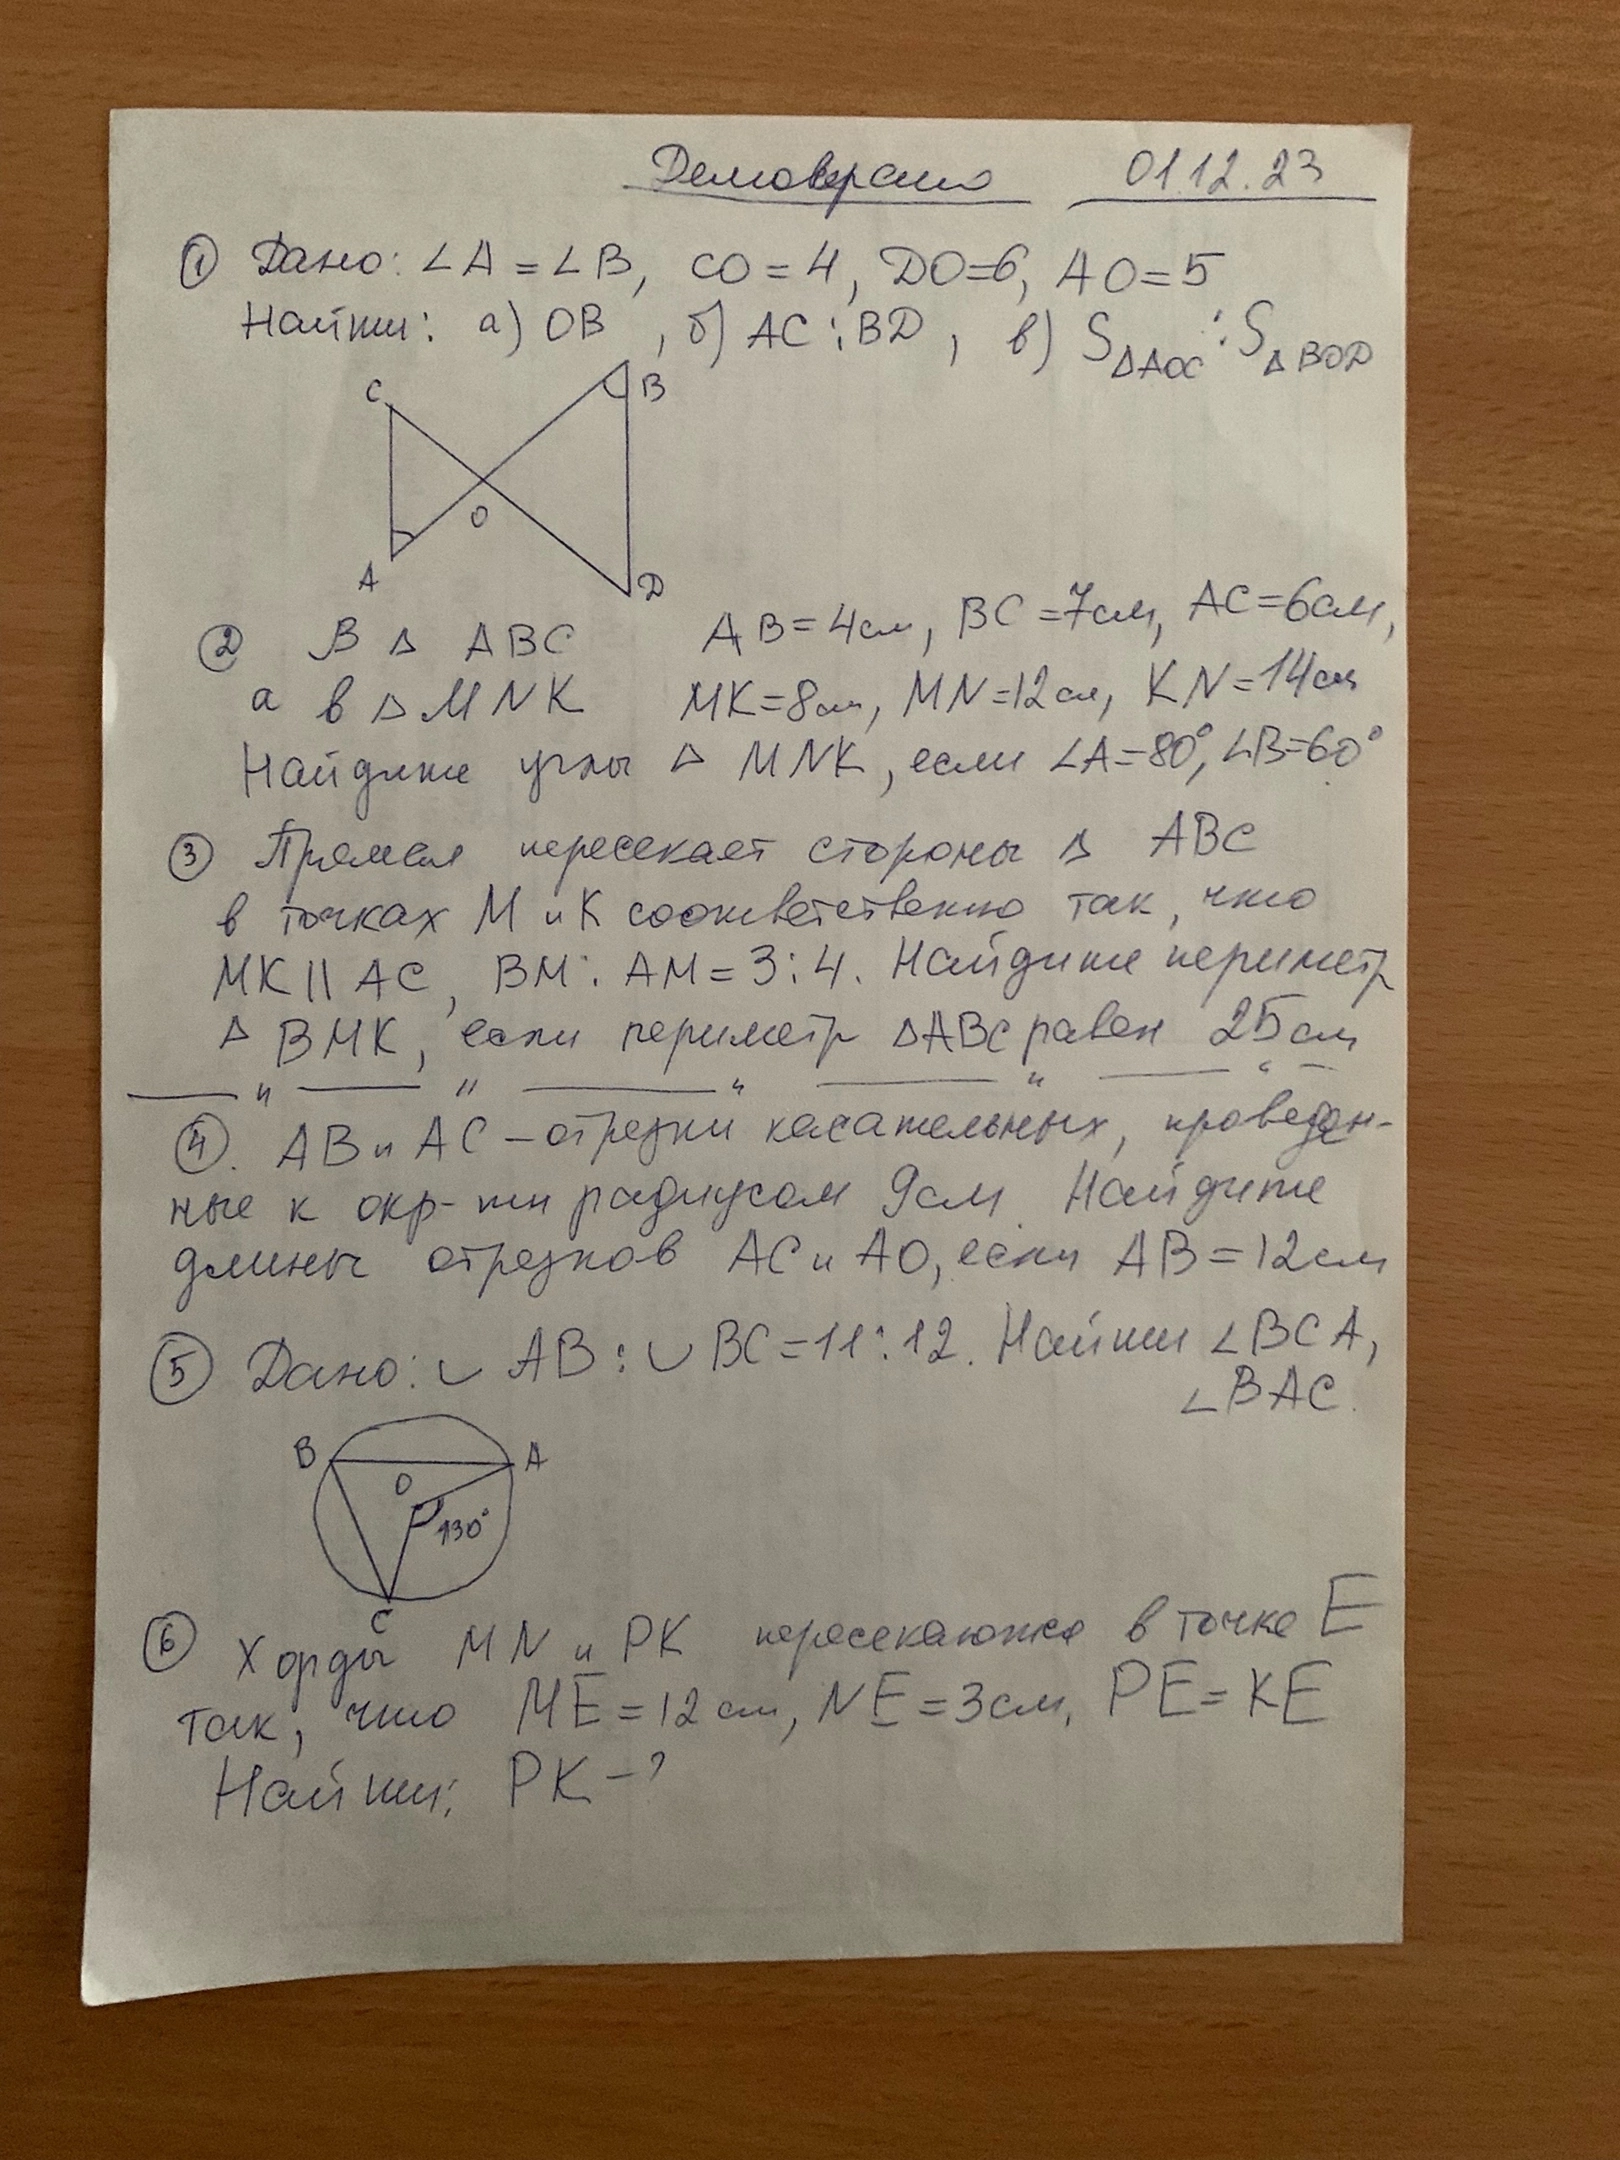 Демоверсия 01.12.23
① Дано: ∠A = ∠B, CO = 4, DO = 6, AO = 5
Найти: а) OB, б) AC : BD, в) S△AOC : S△BOD
C
B
O
A
D
② В △ ABC AB = 4см, BC = 7см, AC = 6см,
а в △ MNK MK = 8см, MN = 12см, KN = 14см
Найдите углы △ MNK, если ∠A = 80°, ∠B = 60°
③ Прямая пересекает стороны △ ABC
в точках M и K соответственно так, что
MK || AC, BM : AM = 3 : 4. Найдите периметр
△ BMK, если периметр △ABC равен 25см
— " — " — " — " — " —
④. AB и AC – отрезки касательных, проведен-
ные к окр-ти радиусом 9см. Найдите
длины отрезков AC и AO, если AB = 12см
⑤ Дано: ◡ AB : ◡ BC = 11 : 12. Найти ∠BCA,
∠BAC.
B
A
O
130°
C
⑥ Хорды MN и PK пересекаются в точке E
так, что ME = 12см, NE = 3см, PE = KE
Найти: PK – ?